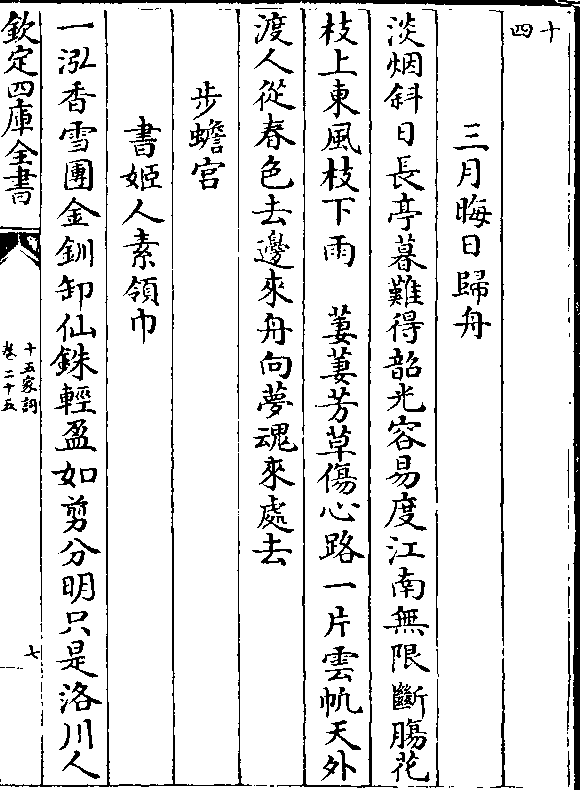 十四
三月晦日歸舟
淡烟斜日長亭暮難得韶光容易度江南無限斷腸花
枝上東風枝下雨　萋萋芳草傷心路一片雲帆天外
渡人從春色去邊來舟向夢魂來處去
步蟾宮
書姬人素領巾
一泓香雪團金釧卸仙銖輕盈如剪分明只是洛川人
欽定四庫全書
十五家詞
卷二十五
七